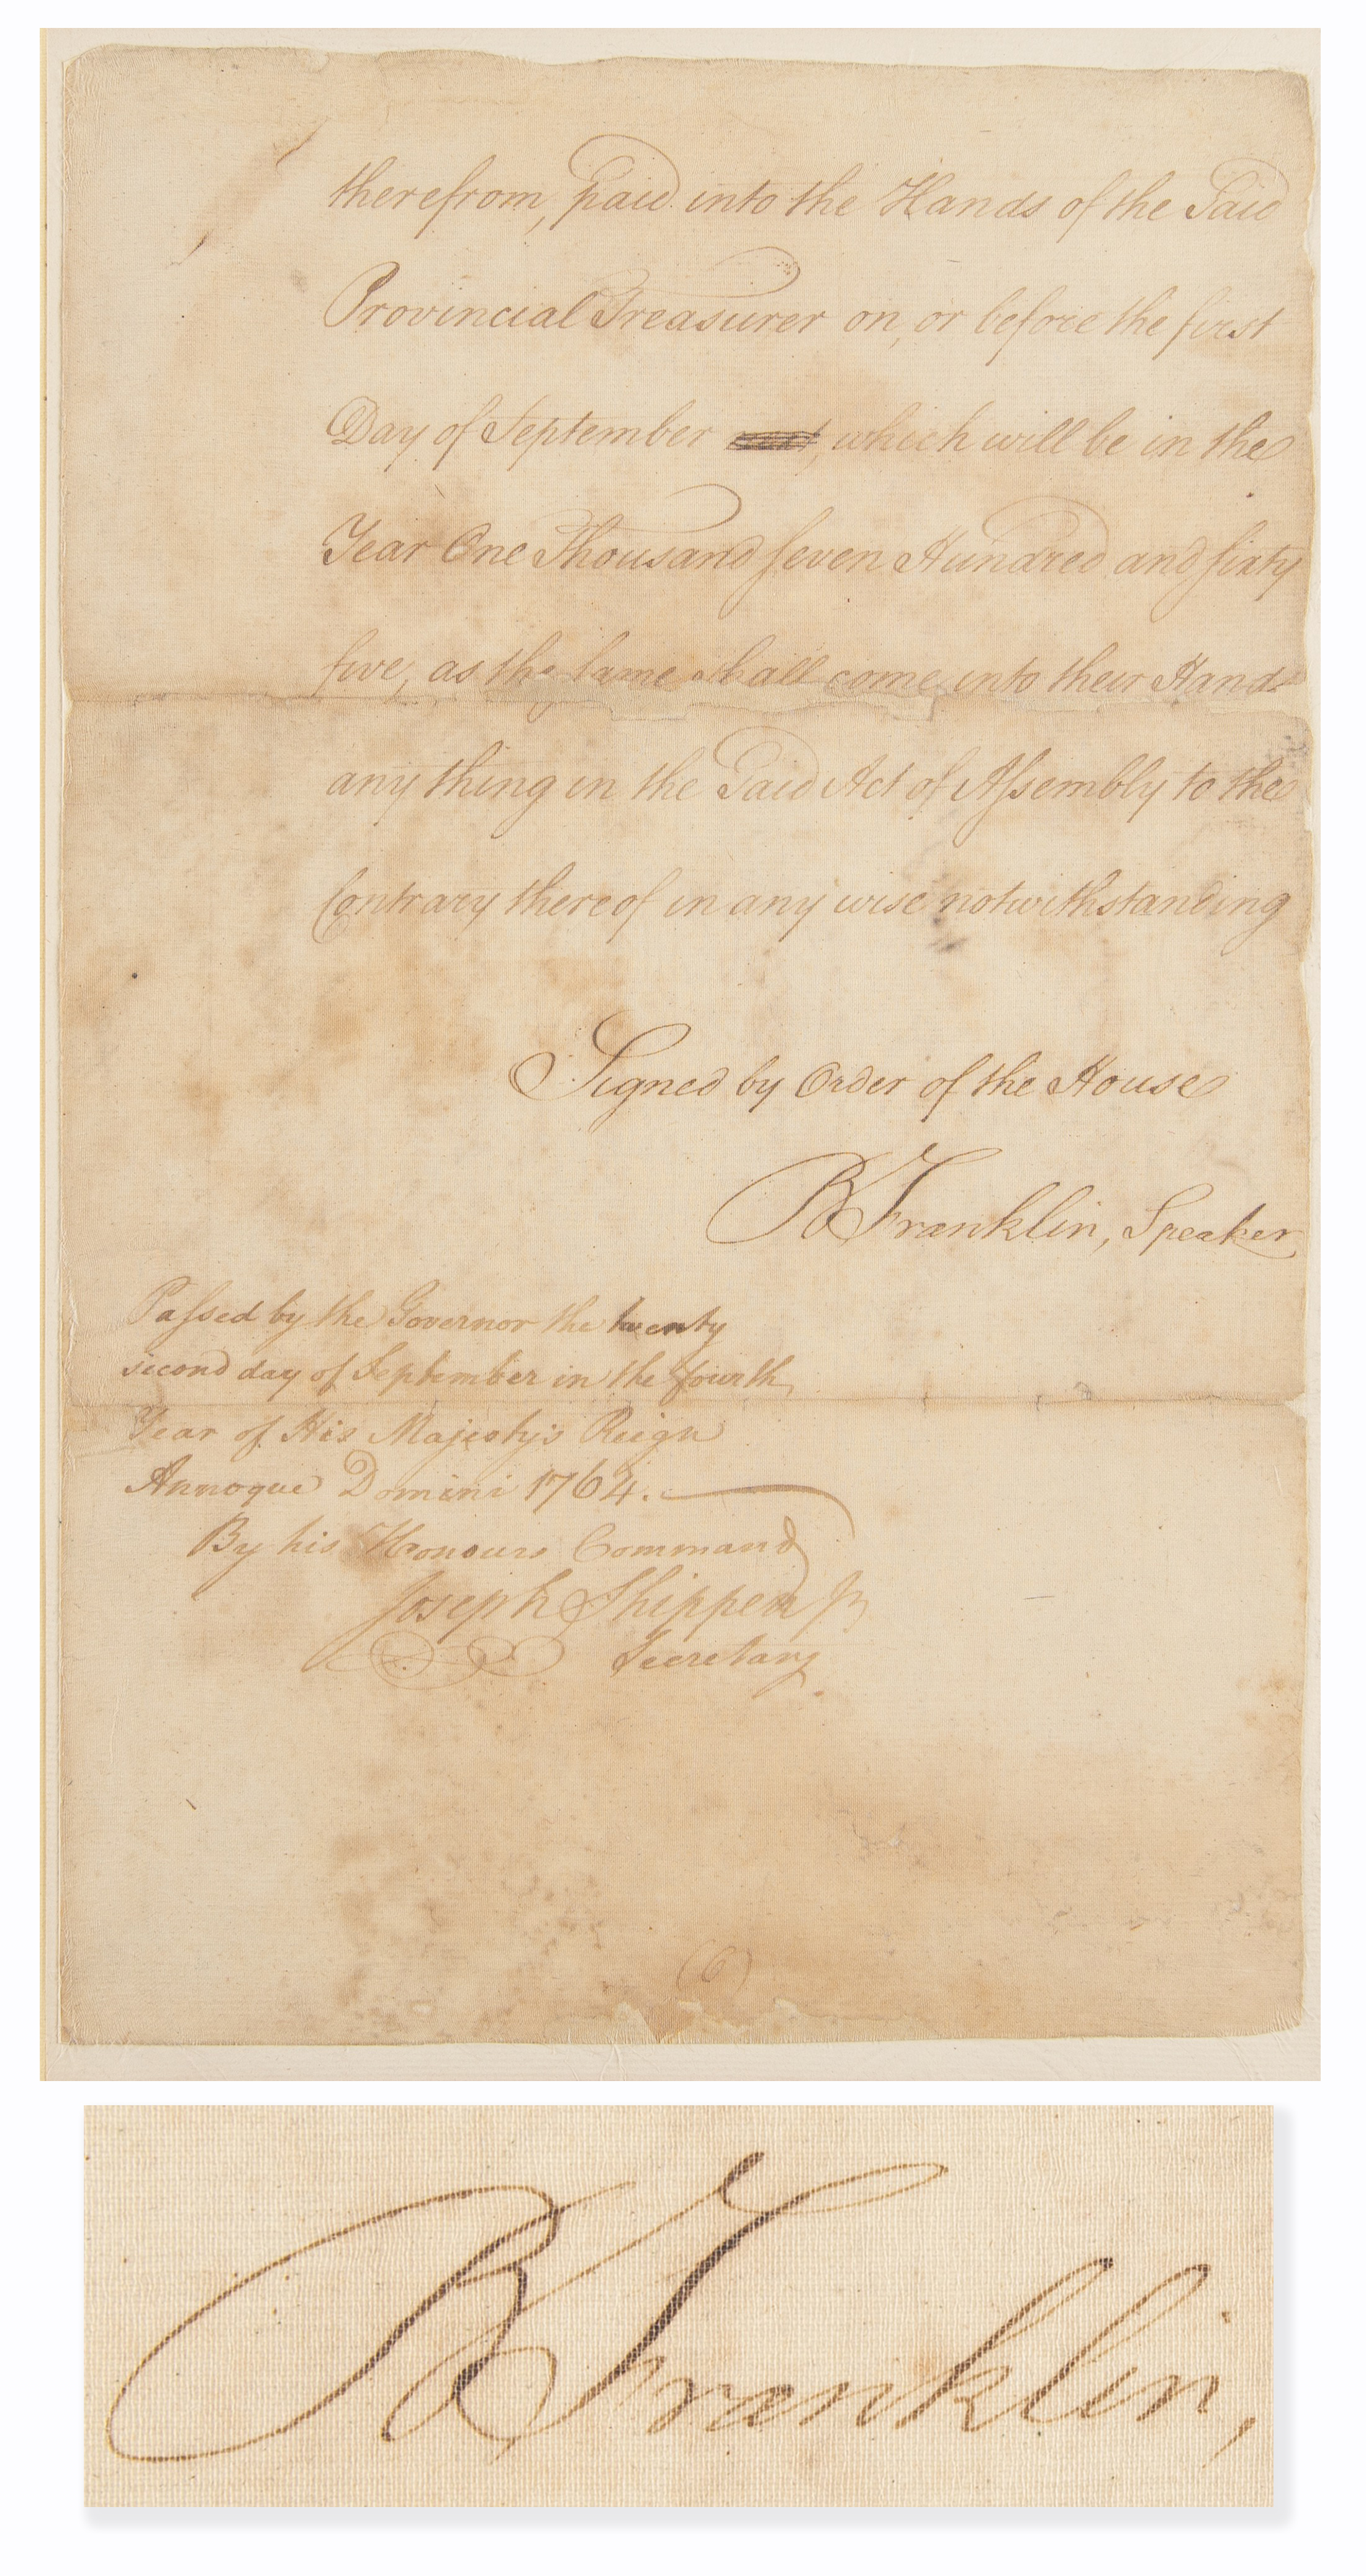 therefrom, paid into the Hands of the Said
Provincial Treasurer on, or before the first
Day of September , which will be in the
Year One Thousand seven Hundred and sixty
five, as the same shall come into their Hands
any thing in the Said Act of Assembly to the
Contrary thereof in any wise notwithstanding
Signed by Order of the House
B Franklin, Speaker
Passed by the Governor the twenty
second day of September in the fourth
Year of His Majesty's Reign
Annoque Domini 1764.
By his Honours Command
Joseph Shippen Jr
Secretary
(6)
B Franklin,